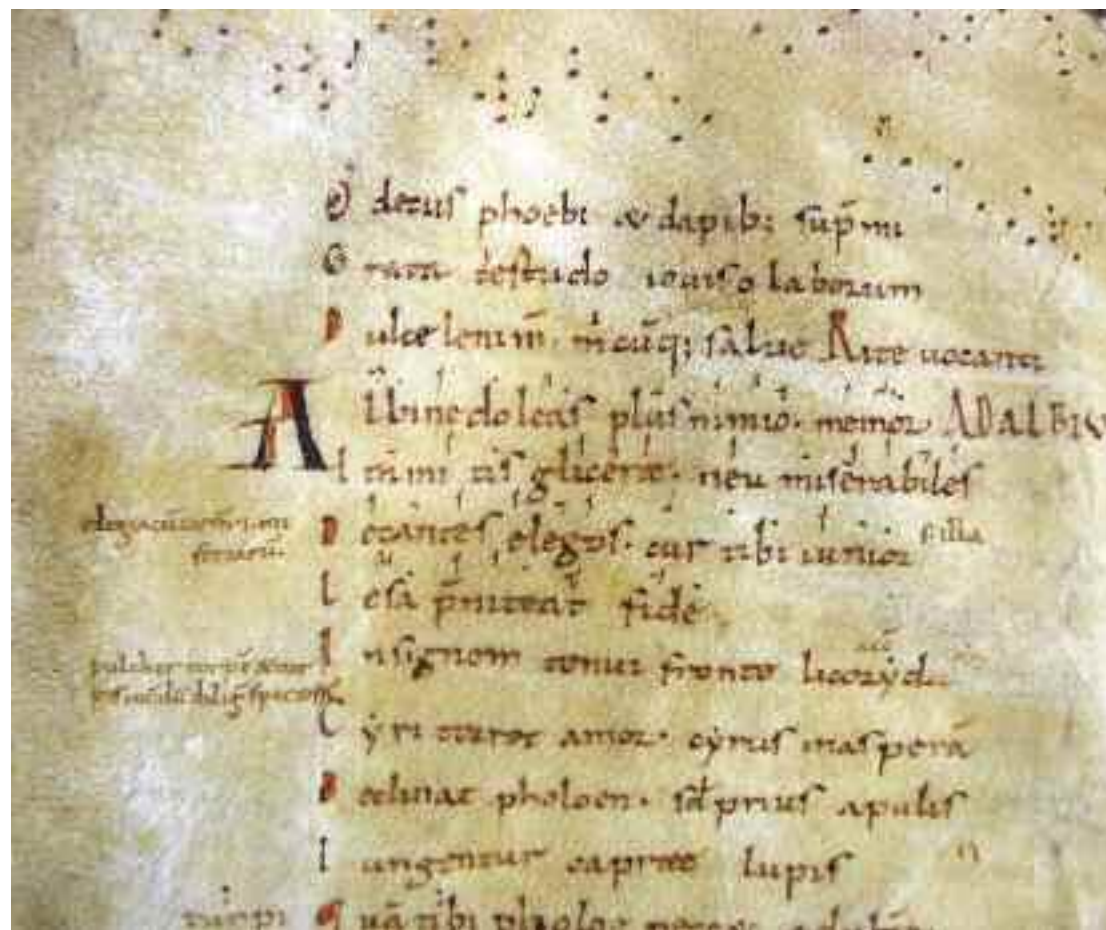 O decus phoebi & dapib; sup̄mi
G rata testudo iouis o laborum
D ulce lenim̄. m̄ cūq; salue Rite uocanti
A lbi ne doleas plus nimio. memor ADALBIV
I mmi tis glicere. neu miserabiles
D ecantes elegos. cur tibi iunior s illa
L esa p̄niteat fide
I nsignem tenui fronte licoryda
C yri torret amor. cyrus inasperā
D eclinat pholoen. sꝫ prius apulis
I ungentur capree lupis
turpi Q uā